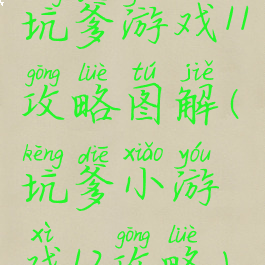 坑爹游戏11
gōng lüè tú jiě
攻略图解(
kēng diē xiǎo yóu
坑爹小游
xì gōng lüè
戏1 攻略)